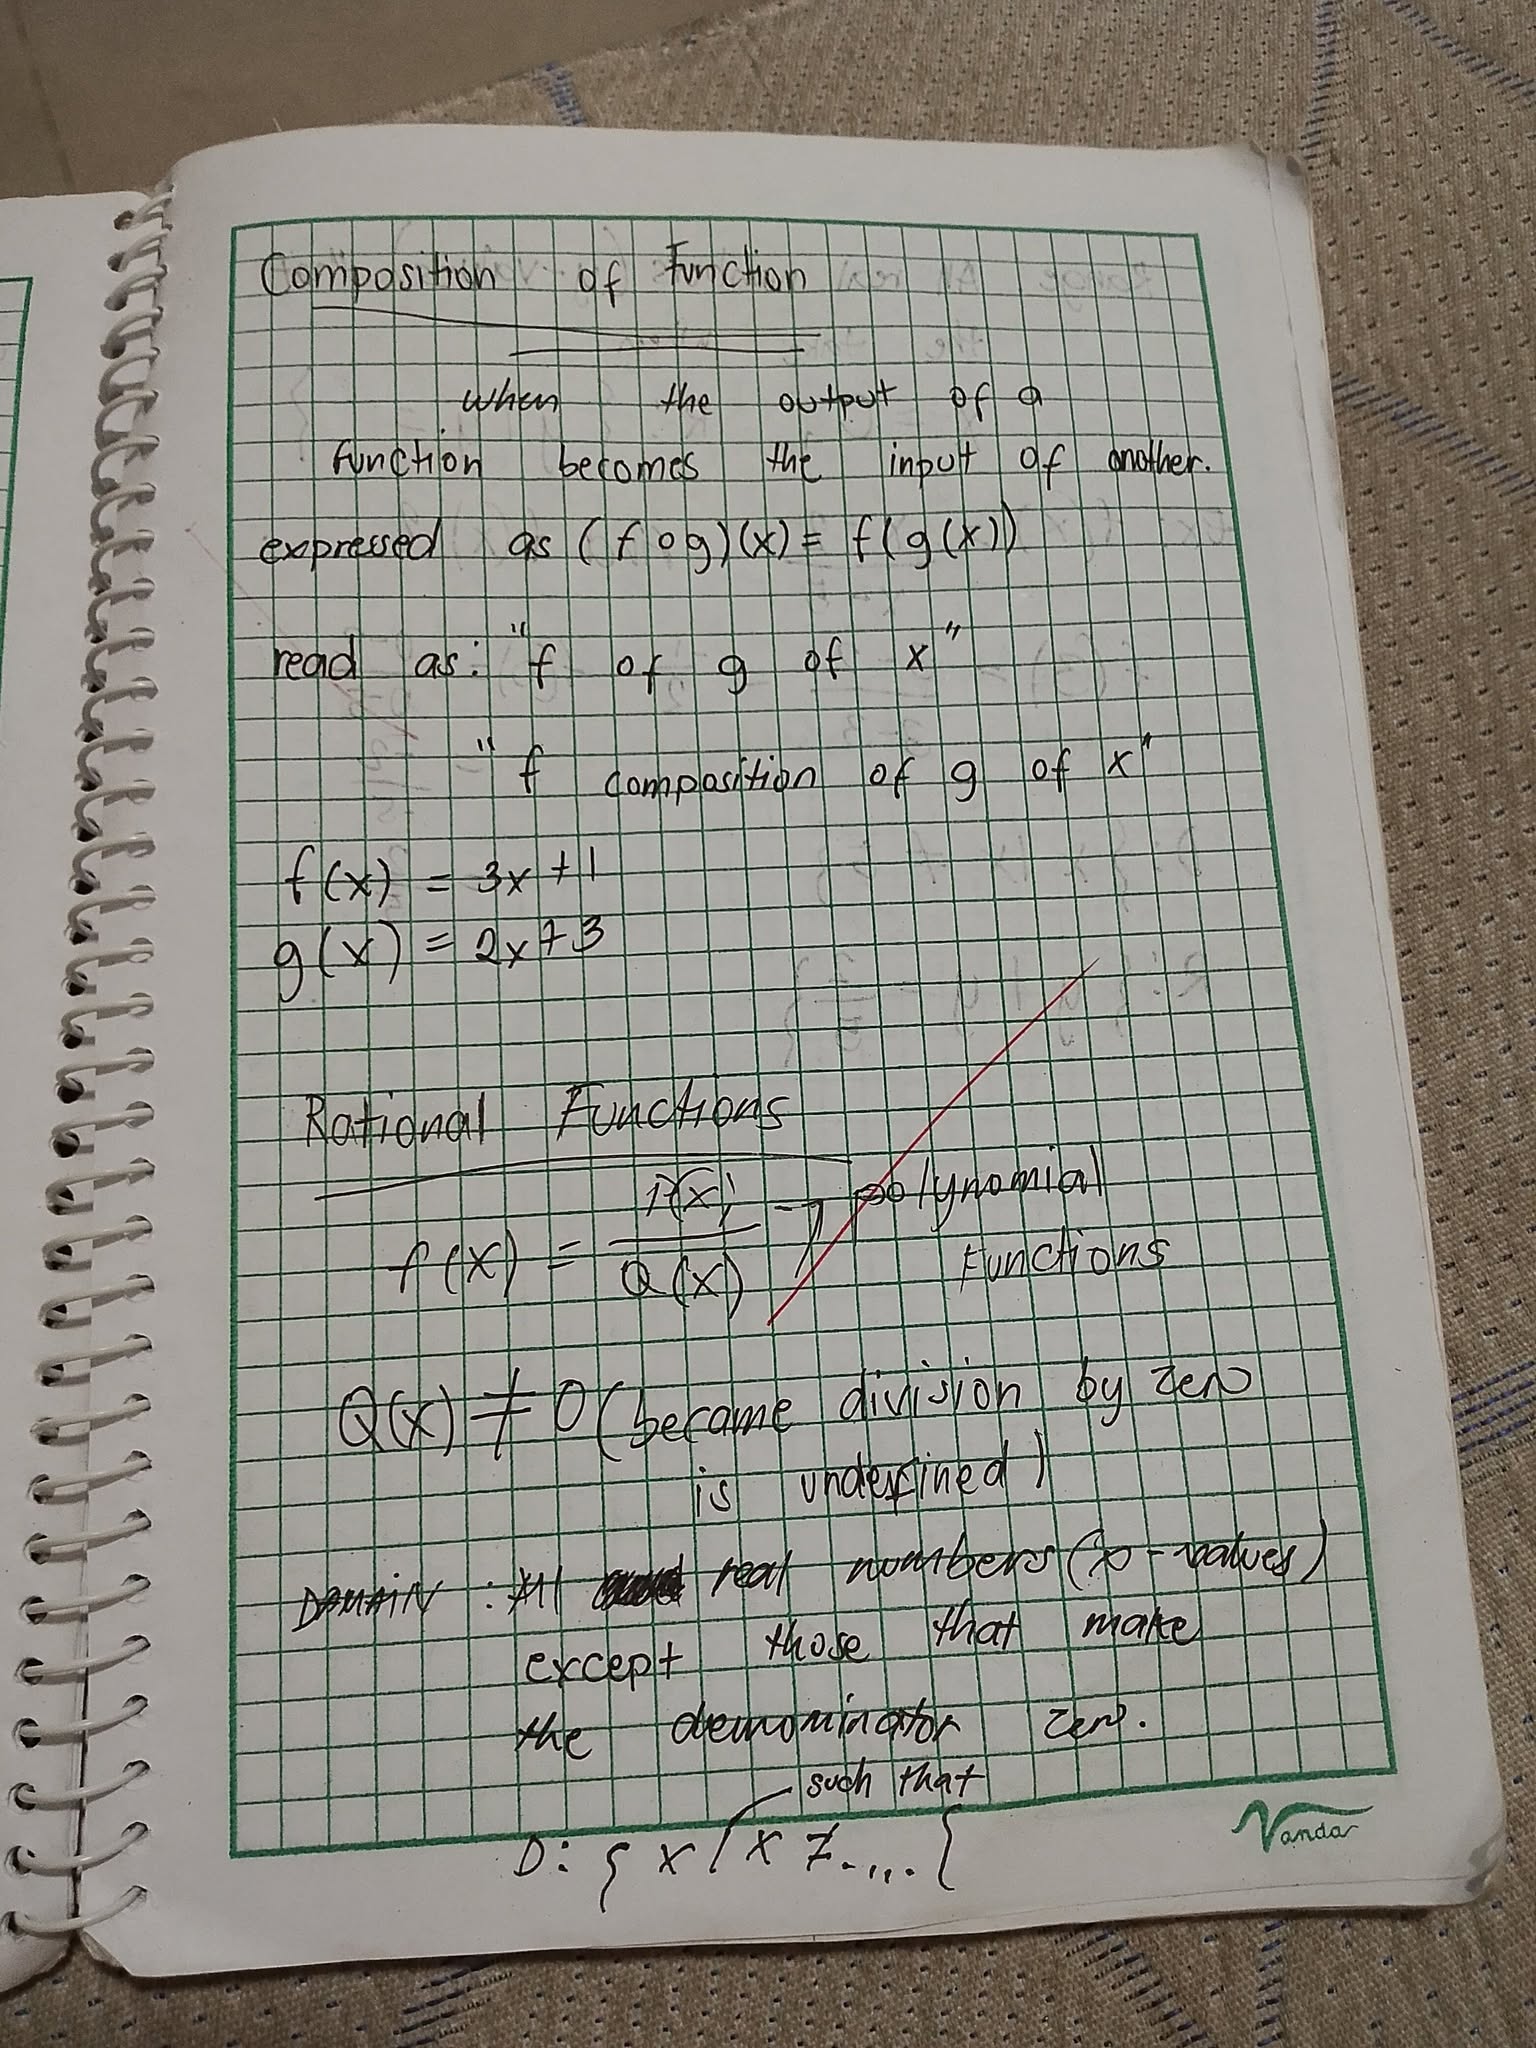 Composition of Function
when the output of a
function becomes the input of another.
expressed as (f o g)(x) = f(g(x))
read as: "f of g of x"
"f composition of g of x"
f(x) = 3x + 1
g(x) = 2x + 3
Rational Functions
f(x) = P(x) / Q(x) → polynomial
Functions
Q(x) ≠ 0 (became division by zero
is undefined)
DOMAIN : All real numbers (x - values)
except those that make
the denominator zero.
such that
D: { x / x ≠ ..... {
Vanda